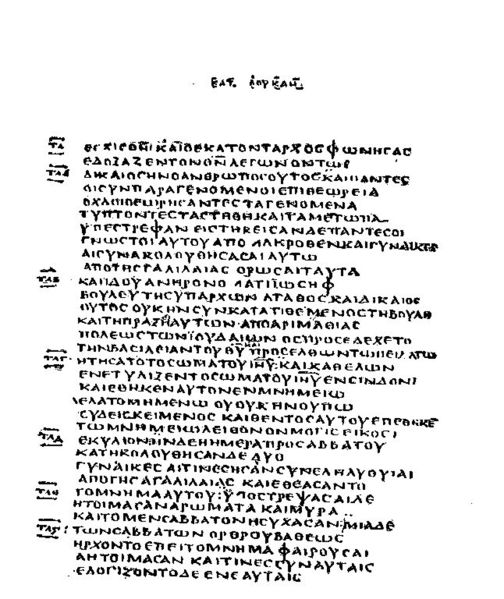 ΚΑΙΟΕΚΑΤΟΝΤΑΡΧΟΣΦΩΝΗΣΑΣ
ΕΔΟΞΑΖΕΝΤΟΝΘ̅Ν̅ ΛΕΓΩΝΟΝΤΩΣ
ΔΙΚΑΙΟΣΗΝΟΑΝΘΡΩΠΟΣΟΥΤΟΣ·ΚΑΙΠΑΝΤΕΣ
ΟΙΣΥΝΠΑΡΑΓΕΝΟΜΕΝΟΙΕΠΙΘΕΩΡΕΙΑ
ΟΧΛΟΙΘΕΩΡΗΣΑΝΤΕΣΤΑΓΕΝΟΜΕΝΑ
ΤΥΠΤΟΝΤΕΣΤΑΣΤΗΘΗΚΑΙΤΑΜΕΤΩΠΑ
ΥΠΕΣΤΡΕΦΑΝ ΕΙΣΤΗΚΕΙΣΑΝΔΕΠΑΝΤΕΣΟΙ
ΓΝΩΣΤΟΙΑΥΤΟΥ ΑΠΟ ΜΑΚΡΟΘΕΝΚΑΙΓΥΝΑΙΚΕΣ
ΑΙΣΥΝΑΚΟΛΟΥΘΗΣΑΣΑΙΑΥΤΩ
ΑΠΟΤΗΣΓΑΛΙΛΑΙΑΣ ΟΡΩΣΑΙΤΑΥΤΑ
ΚΑΙΙΔΟΥΑΝΗΡΟΝΟΜΑΤΙΙΩΣΗΦ
ΒΟΥΛΕΥΤΗΣΥΠΑΡΧΩΝ ΑΓΑΘΟΣ ΚΑΙΔΙΚΑΙΟΣ
ΟΥΤΟΣ ΟΥΚΗΝΣΥΝΚΑΤΑΤΙΘΕΜΕΝΟΣΤΗΒΟΥΛΗ
ΚΑΙΤΗΠΡΑΞΗΑΥΤΩΝ ΑΠΟΑΡΙΜΑΘΙΑΣ
ΠΟΛΕΩΣΤΩΝΙΟΥΔΑΙΩΝ ΟΣΠΡΟΣΕΔΕΧΕΤΟ
ΤΗΝΒΑΣΙΛΕΙΑΝΤΟΥΘ̅Υ̅ ΚΑΙΠΡΟΣΕΛΘΩΝΤΩΠΕΙΛΑΤΩ
ΗΤΗΣΑΤΟΤΟΣΩΜΑΤΟΥΙΗ̅Υ̅: ΚΑΙΚΑΘΕΛΩΝ
ΕΝΕΤΥΛΙΞΕΝΤΟΣΩΜΑΤΟΥΙΗ̅Υ̅ΕΝΣΙΝΔΟΝΙ
ΚΑΙΕΘΗΚΕΝΑΥΤΟΝΕΝΜΝΗΜΕΙΩ
ΛΕΛΑΤΟΜΗΜΕΝΩ ΟΥΟΥΚΗΝΟΥΠΩ
ΟΥΔΕΙΣΚΕΙΜΕΝΟΣ ΚΑΙΘΕΝΤΟΣΑΥΤΟΥΕΠΕΘΗΚΕ
ΤΩΜΝΗΜΕΙΩΛΕΙΘΟΝΟΝΜΟΓΙΣΕΙΚΟΣΙ
ΕΚΥΛΙΟΝ·ΗΝΔΕΗΗΜΕΡΑΠΡΟΣΑΒΒΑΤΟΥ
ΚΑΤΗΚΟΛΟΥΘΗΣΑΝΔΕ ΔΥΟ
ΓΥΝΑΙΚΕΣ ΑΙΤΙΝΕΣΗΣΑΝΣΥΝΕΛΗΛΥΘΥΙΑΙ
ΑΠΟΤΗΣΓΑΛΙΛΑΙΑΣ ΚΑΙΕΘΕΑΣΑΝΤΟ
ΤΟΜΝΗΜΑΑΥΤΟΥ: ΥΠΟΣΤΡΕΨΑΣΑΙΔΕ
ΗΤΟΙΜΑΣΑΝΑΡΩΜΑΤΑ ΚΑΙΜΥΡΑ
ΚΑΙΤΟΜΕΝΣΑΒΒΑΤΟΝΗΣΥΧΑΣΑΝ:ΜΙΑΔΕ
ΤΩΝΣΑΒΒΑΤΩΝ ΟΡΘΡΟΥΒΑΘΕΩΣ
ΗΡΧΟΝΤΟΕΠΙΤΟΜΝΗΜΑ ΦΑΙΡΟΥΣΑΙ
ΑΗΤΟΙΜΑΣΑΝ ΚΑΙΤΙΝΕΣΣΥΝΑΥΤΑΙΣ
ΕΛΟΓΙΖΟΝΤΟΔΕ ΕΝΕΑΥΤΑΙΣ